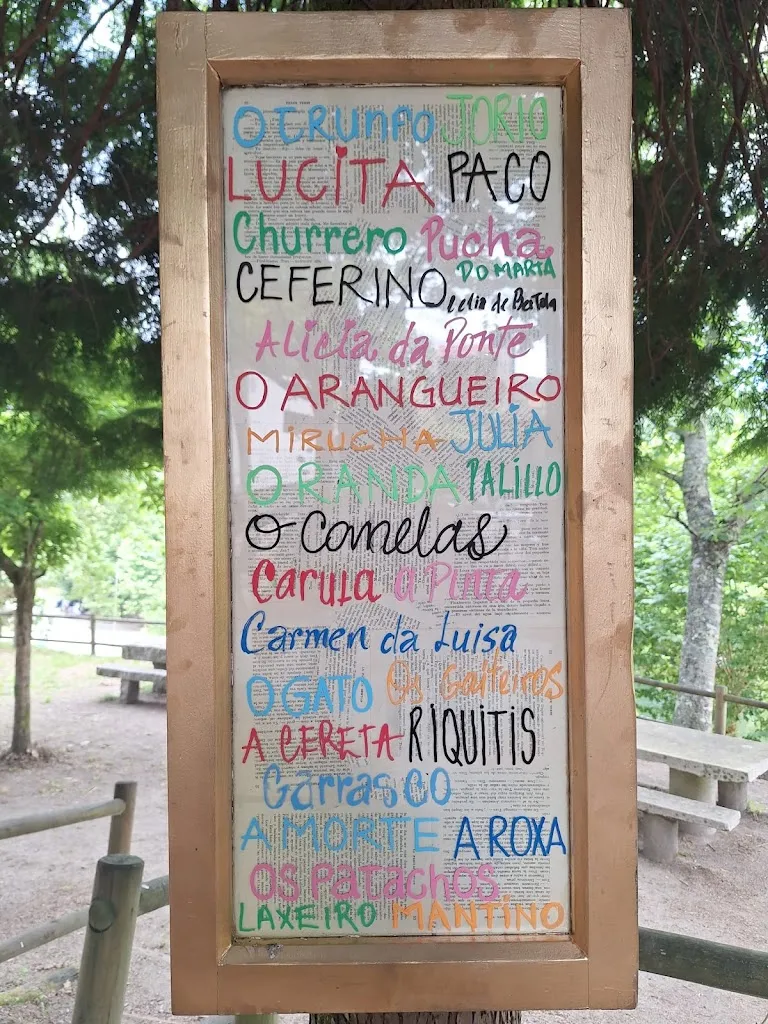 O TRUNFO JORIO
LUCITA PACO
Churrero Pucha
DO MARTA
CEFERINO Celia de Bertola
Alicia da Ponte
O ARANGUEIRO
MIRUCHA JULIA
O RANDA PALILLO
O Comelas
Caruta a Pinta
Carmen da Luisa
O GATO Os Gaiteiros
A CERETA RIQUITIS
Garrasco
A MORTE A ROXA
OS PATACHOS
LAXEIRO MANTINO